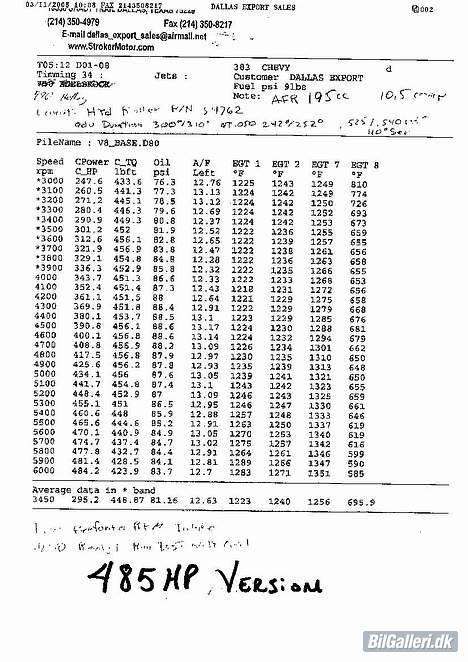 03/11/2005 10:08 FAX 2143508217 DALLAS EXPORT SALES 002
DALLAS, TEXAS
(214) 350-4979 Fax (214) 350-8217
E-mail dallas_export_sales@airmail.net
www.StrokerMotor.com
T05:12 D01-08 383 CHEVY d
Timming 34 : Jets : Customer DALLAS EXPORT
Fuel psi 91bs
Note: AFR 195cc 10,5 comp
Hyd Roller P/N 54762
adv Duration 300°/310° at.050 242°/252°
110° Sep
FileName : V8_BASE.D80
Speed CPower C_TQ Oil A/F EGT 1 EGT 2 EGT 7 EGT 8
rpm C_HP lbft psi Left °F °F °F °F
*3000 247.6 433.6 76.3 12.76 1225 1243 1249 810
*3100 260.5 441.3 77.3 13.13 1224 1241 1249 774
*3200 271.2 445.1 78.5 13.12 1224 1242 1250 726
*3300 280.4 446.3 79.6 12.69 1224 1242 1252 693
*3400 290.9 449.3 80.8 12.37 1224 1242 1253 673
*3500 301.2 452 81.9 12.52 1222 1236 1255 659
*3600 312.6 456.1 82.8 12.65 1222 1239 1257 655
*3700 321.9 456.9 83.8 12.47 1222 1238 1261 656
*3800 329.1 454.8 84.8 12.28 1222 1236 1263 658
*3900 336.3 452.9 85.8 12.32 1222 1235 1266 655
4000 343.7 451.3 86.6 12.33 1222 1233 1268 653
4100 352.4 451.4 87.3 12.43 1218 1231 1272 656
4200 361.1 451.5 88 12.64 1221 1229 1275 658
4300 369.9 451.8 88.4 12.91 1222 1229 1279 668
4400 380.1 453.7 88.5 13.1 1223 1229 1285 676
4500 390.8 456.1 88.6 13.17 1224 1230 1288 681
4600 400.1 456.8 88.6 13.14 1224 1232 1294 679
4700 408.8 456.9 88.2 13.09 1226 1234 1301 662
4800 417.5 456.8 87.9 12.97 1230 1235 1310 650
4900 425.6 456.2 87.8 12.93 1235 1239 1313 648
5000 434.1 456 87.6 13.05 1239 1241 1321 650
5100 441.7 454.8 87.4 13.1 1243 1242 1323 655
5200 448.4 452.9 87 13.09 1246 1243 1325 659
5300 455.1 451 86.5 12.95 1246 1247 1330 661
5400 460.6 448 85.9 12.88 1257 1248 1333 646
5500 465.6 444.6 85.2 12.91 1263 1250 1337 619
5600 470.1 440.9 84.9 13.05 1270 1253 1340 619
5700 474.7 437.4 84.7 13.02 1275 1257 1342 616
5800 477.8 432.7 84.4 12.91 1264 1261 1346 599
5900 481.4 428.5 84.1 12.81 1289 1266 1347 590
6000 484.2 423.9 83.7 12.7 1283 1271 1351 585
Average data in * band
3450 295.2 448.87 81.16 12.63 1223 1240 1256 695.9
485HP, VERSION
BilGalleri.dk